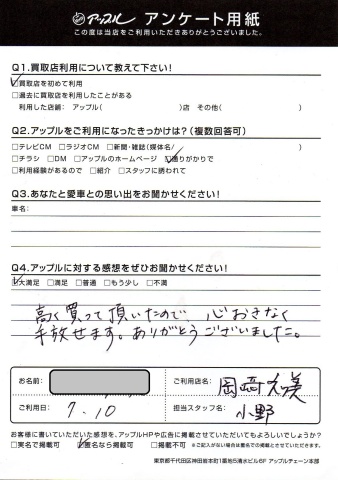 アップル アンケート用紙
この度は当店をご利用いただきありがとうございました。
Q1.買取店利用について教えて下さい!
☑買取店を初めて利用
□過去に買取店を利用したことがある
利用した店舗: アップル( )店 その他( )
Q2.アップルをご利用になったきっかけは?(複数回答可)
□テレビCM □ラジオCM □新聞・雑誌(媒体名/ )
□チラシ □DM □アップルのホームページ ☑通りがかりで
□利用経験があるので □紹介 □スタッフに誘われて
Q3.あなたと愛車との思い出をお聞かせください!
車名:
Q4.アップルに対する感想をぜひお聞かせください!
☑大満足 □満足 □普通 □もう少し □不満
高く買って頂いたので、心おきなく
手放せます。ありがとうございました。
お名前:
ご利用店名: 岡崎大美
ご利用日: 7.10
担当スタッフ名: 小野
お客様に書いていただいた感想を、アップルHPや広告に掲載させていただいてもよろしいでしょうか?
□実名で掲載可 ☑匿名なら掲載可 □掲載不可 ※ご記入がない場合は匿名での掲載とさせていただきます。
東京都千代田区神田岩本町1番地5清水ビル6F アップルチェーン本部